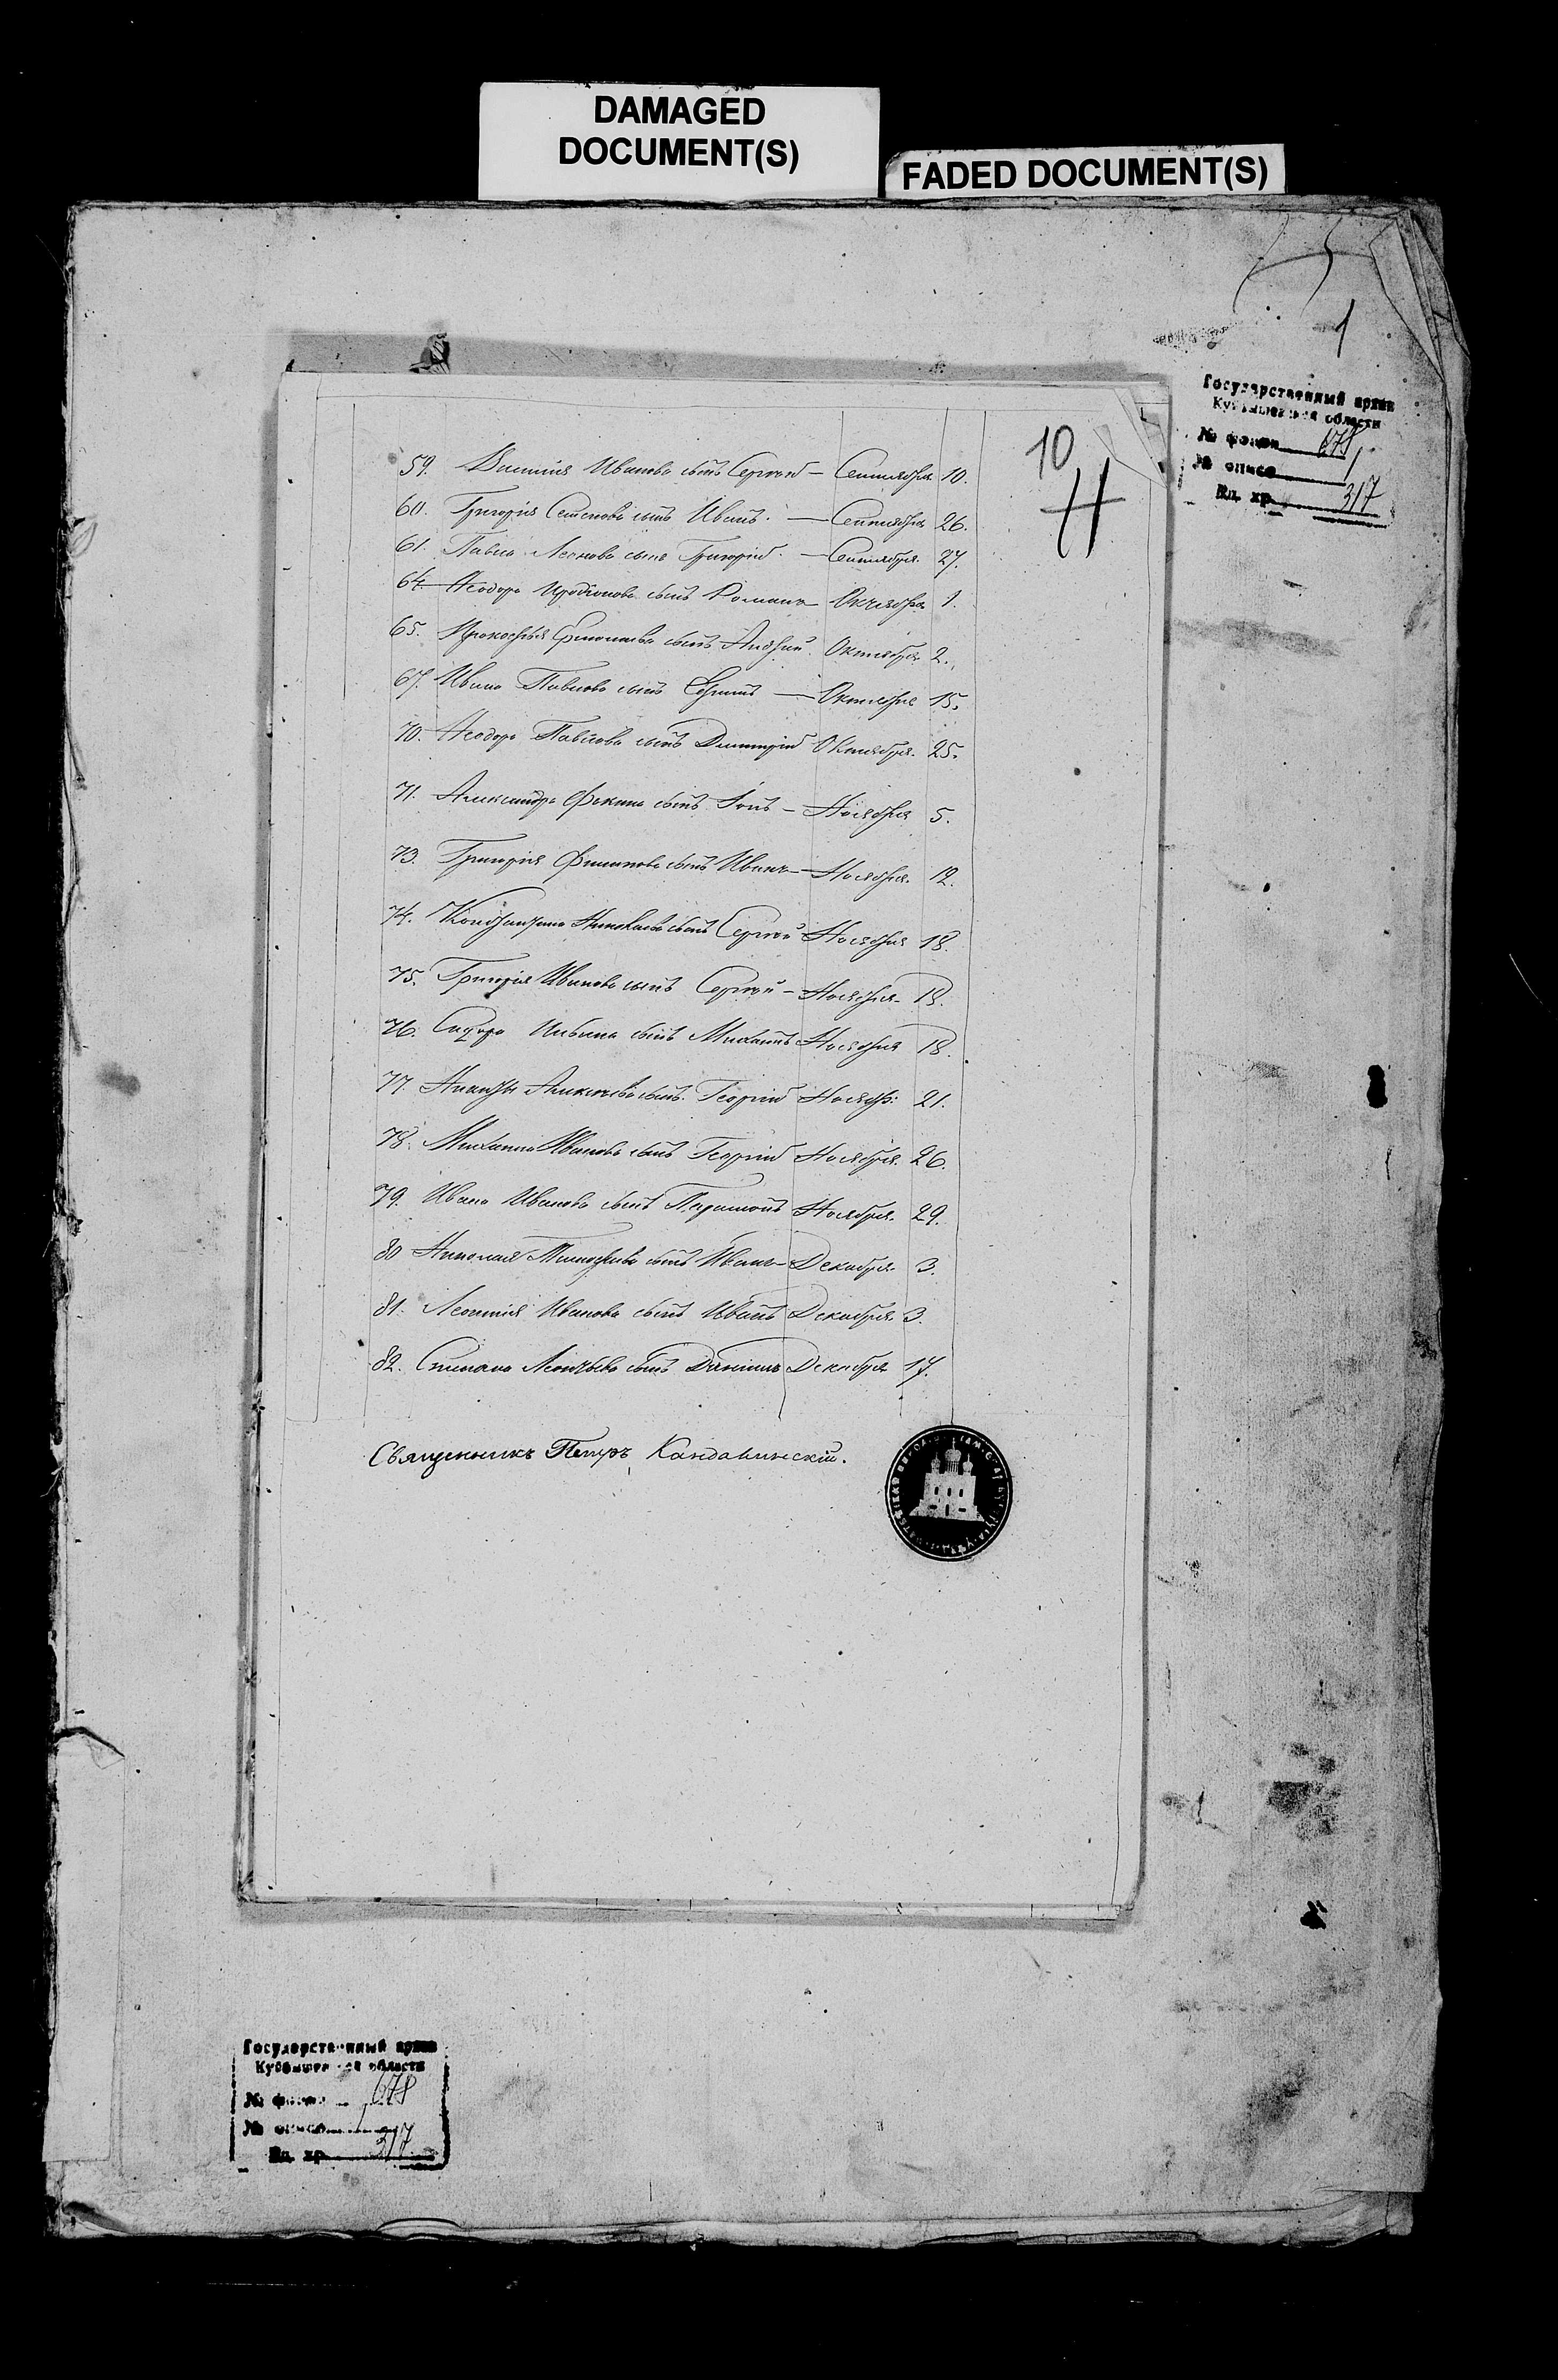 DAMAGED
DOCUMENT(S)
FADED DOCUMENT(S)
1
Государственный архив
Куйбышевской области
№ фонда 678
№ описи 1
Ед. хр. 317
10
59. Василия Иванова сынъ Сергѣй — Сентября 10.
60. Григорія Семенова сынъ Иванъ. — Сентября 26.
61. Павла Леонова сынъ Григорій. — Сентября. 27.
64. Ѳеодора Иродіонова сынъ Романъ Октября 1.
65. Прокофья Ермолаева сынъ Андрей. Октября 2.
67. Ивана Павлова сынъ — Октября 15.
70. Ѳеодора Павлова сынъ Димитрій Октября. 25.
71. Александра Фокина сынъ Іонъ — Ноября 5.
73. Григорія Филипова сынъ Иванъ — Ноября. 12.
74. Константина Николаева сынъ Сергѣй Ноября 18.
75. Григорія Иванова сынъ Сергѣй — Ноября. 18.
76. Сидора Ильина сынъ Михаилъ Ноября 18.
77. Никиты Алексѣева сынъ. Георгій Ноябр: 21.
78. Михаила Иванова сынъ Георгій Ноября. 26.
79. Ивана Иванова сынъ Парамонъ Ноября. 29.
80 Николая Тимофеева сынъ Иванъ — Декабря. 3.
81. Леонтія Иванова сынъ Иванъ Декабря. 3.
82. Степана Леонтьева сынъ Даніилъ Декабря 17.
Священникъ Петръ Кандалинскій.
Государственный архив
Куйбышевской области
№ фонда 678
№ описи 1
Ед. хр. 317